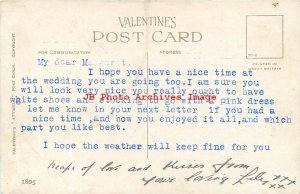 VALENTINE'S
POST CARD
FOR COMMUNICATION
ADDRESS
PRINTED IN
GREAT BRITAIN
My dear
I hope you have a nice time at
the wedding you are going too. I am sure you
will look very nice you really ought to have
white shoes and stocking to go with a pink dress
let me know in your next letter if you had a
nice time ,and how you enjoyed it all,and which
part you like best.
JB Photo Archive Images
I hope the weather will keep fine for you
heaps of love and kisses from
your loving
xxx
1805